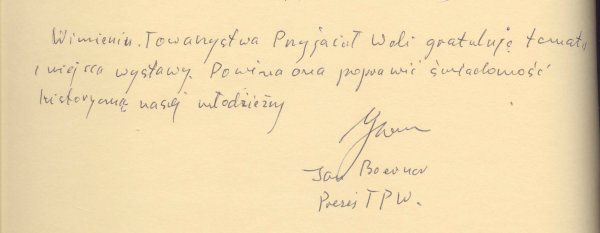 W imieniu Towarzystwa Przyjaciół Woli gratuluję tematu
i miejsca wystawy. Powinna ona poprawić świadomość
historyczną naszej młodzieży
Jan
Prezes TPW.